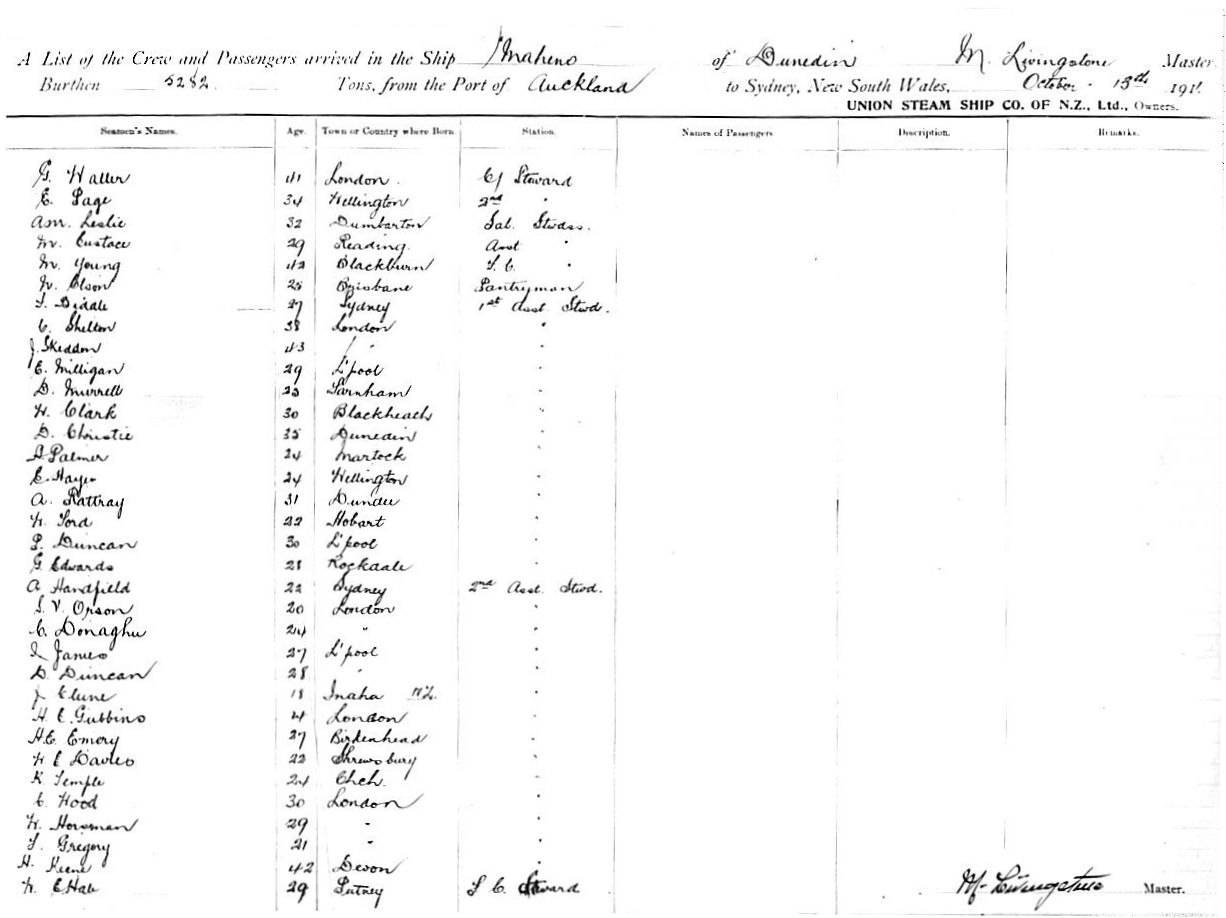 A List of the Crew and Passengers arrived in the Ship Maheno of Dunedin M. Livingstone Master
Burthen 5282 Tons, from the Port of Auckland to Sydney, New South Wales, October 13th 191
UNION STEAM SHIP CO. OF N.Z., Ltd., Owners.
Seamen's Names. Age. Town or Country where Born Station. Names of Passengers Description. Remarks.
G. Waller 41 London. Cf Steward
E. Page 34 Wellington 2nd "
Am. Leslie 32 Dumbarton Sal. Stwdss.
M. Eustace 29 Reading. Asst "
M. Young 42 Blackburn S.C. "
W. Olson 25 Brisbane Pantryman
27 Sydney 1st Asst. Stwd.
C. Shelton 38 London "
J. Skeddon 43 " "
E. Milligan 29 L'pool "
D. Murrell 23 Farnham "
W. Clark 30 Blackheath "
D. Christie 35 Dunedin "
A Palmer 24 Martock "
E. Hayes 24 Wellington "
A. Rattray 31 Dundee "
W. Ford 22 Hobart "
P. Duncan 30 L'pool "
G. Edwards 28 Rockdale "
A Handfield 22 Sydney 2nd Asst. Stwd.
S. V. Orson 20 London "
C. Donaghu 24 " "
James 27 L'pool "
D. Duncan 28 " "
J Clune 18 Inaha N.Z. "
H. C. Gubbins London "
H.E. Emery 27 Birkenhead "
W E Davies 22 Shrewsbury "
K Temple 24 Chch. "
C. Hood 30 London "
W. Horsman 29 " "
F. Gregory 21 " "
H. Keene 42 Devon "
W. E Hale 29 Putney S C Steward
M. Livingstone Master.